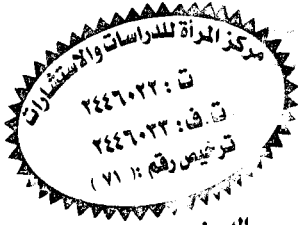 مركز المرأة للدراسات والاستشارات
ت : ٢٤٤٦٠٢٢
ت. ف : ٢٤٤٦٠٢٣
ترخيص رقم : ( ٧١ )